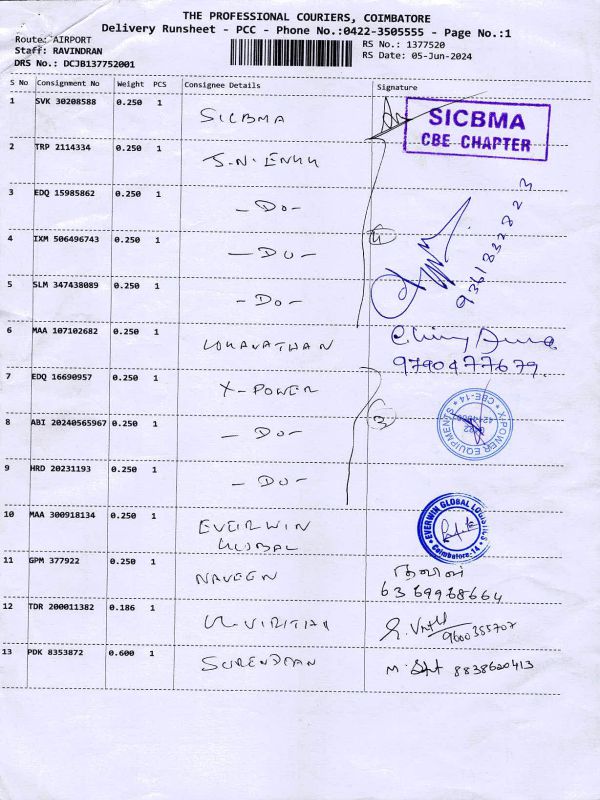 THE PROFESSIONAL COURIERS, COIMBATORE
Delivery Runsheet - PCC - Phone No.:0422-3505555 - Page No.:1
Route: AIRPORT
Staff: RAVINDRAN
DRS No.: DCJB137752001
RS No.: 1377520
RS Date: 05-Jun-2024
S No Consignment No Weight PCS Consignee Details Signature
1 SVK 30208588 0.250 1 SICBMA
SICBMA
CBE CHAPTER
2 TRP 2114334 0.250 1 J.N.
3 EDQ 15985862 0.250 1 - Do -
4 IXM 506496743 0.250 1 - DO - 4
9361832823
5 SLM 347438089 0.250 1 - Do -
6 MAA 107102682 0.250 1 LOKANATHAN
9790477679.
7 EDQ 16690957 0.250 1 X-POWER
8 ABI 20240565967 0.250 1 - Do - 3
X-POWER EQUIPMENTS CBE-14
9 HRD 20231193 0.250 1 - DO -
10 MAA 300918134 0.250 1 EVERWIN
GLOBAL
EVERWIN GLOBAL LOGISTICS
Coimbatore-14
11 GPM 377922 0.250 1 NAVEEN
6369968664
12 TDR 200011382 0.186 1
9600355707
13 PDK 8353872 0.600 1 SURENDRAN
M. 8838620413